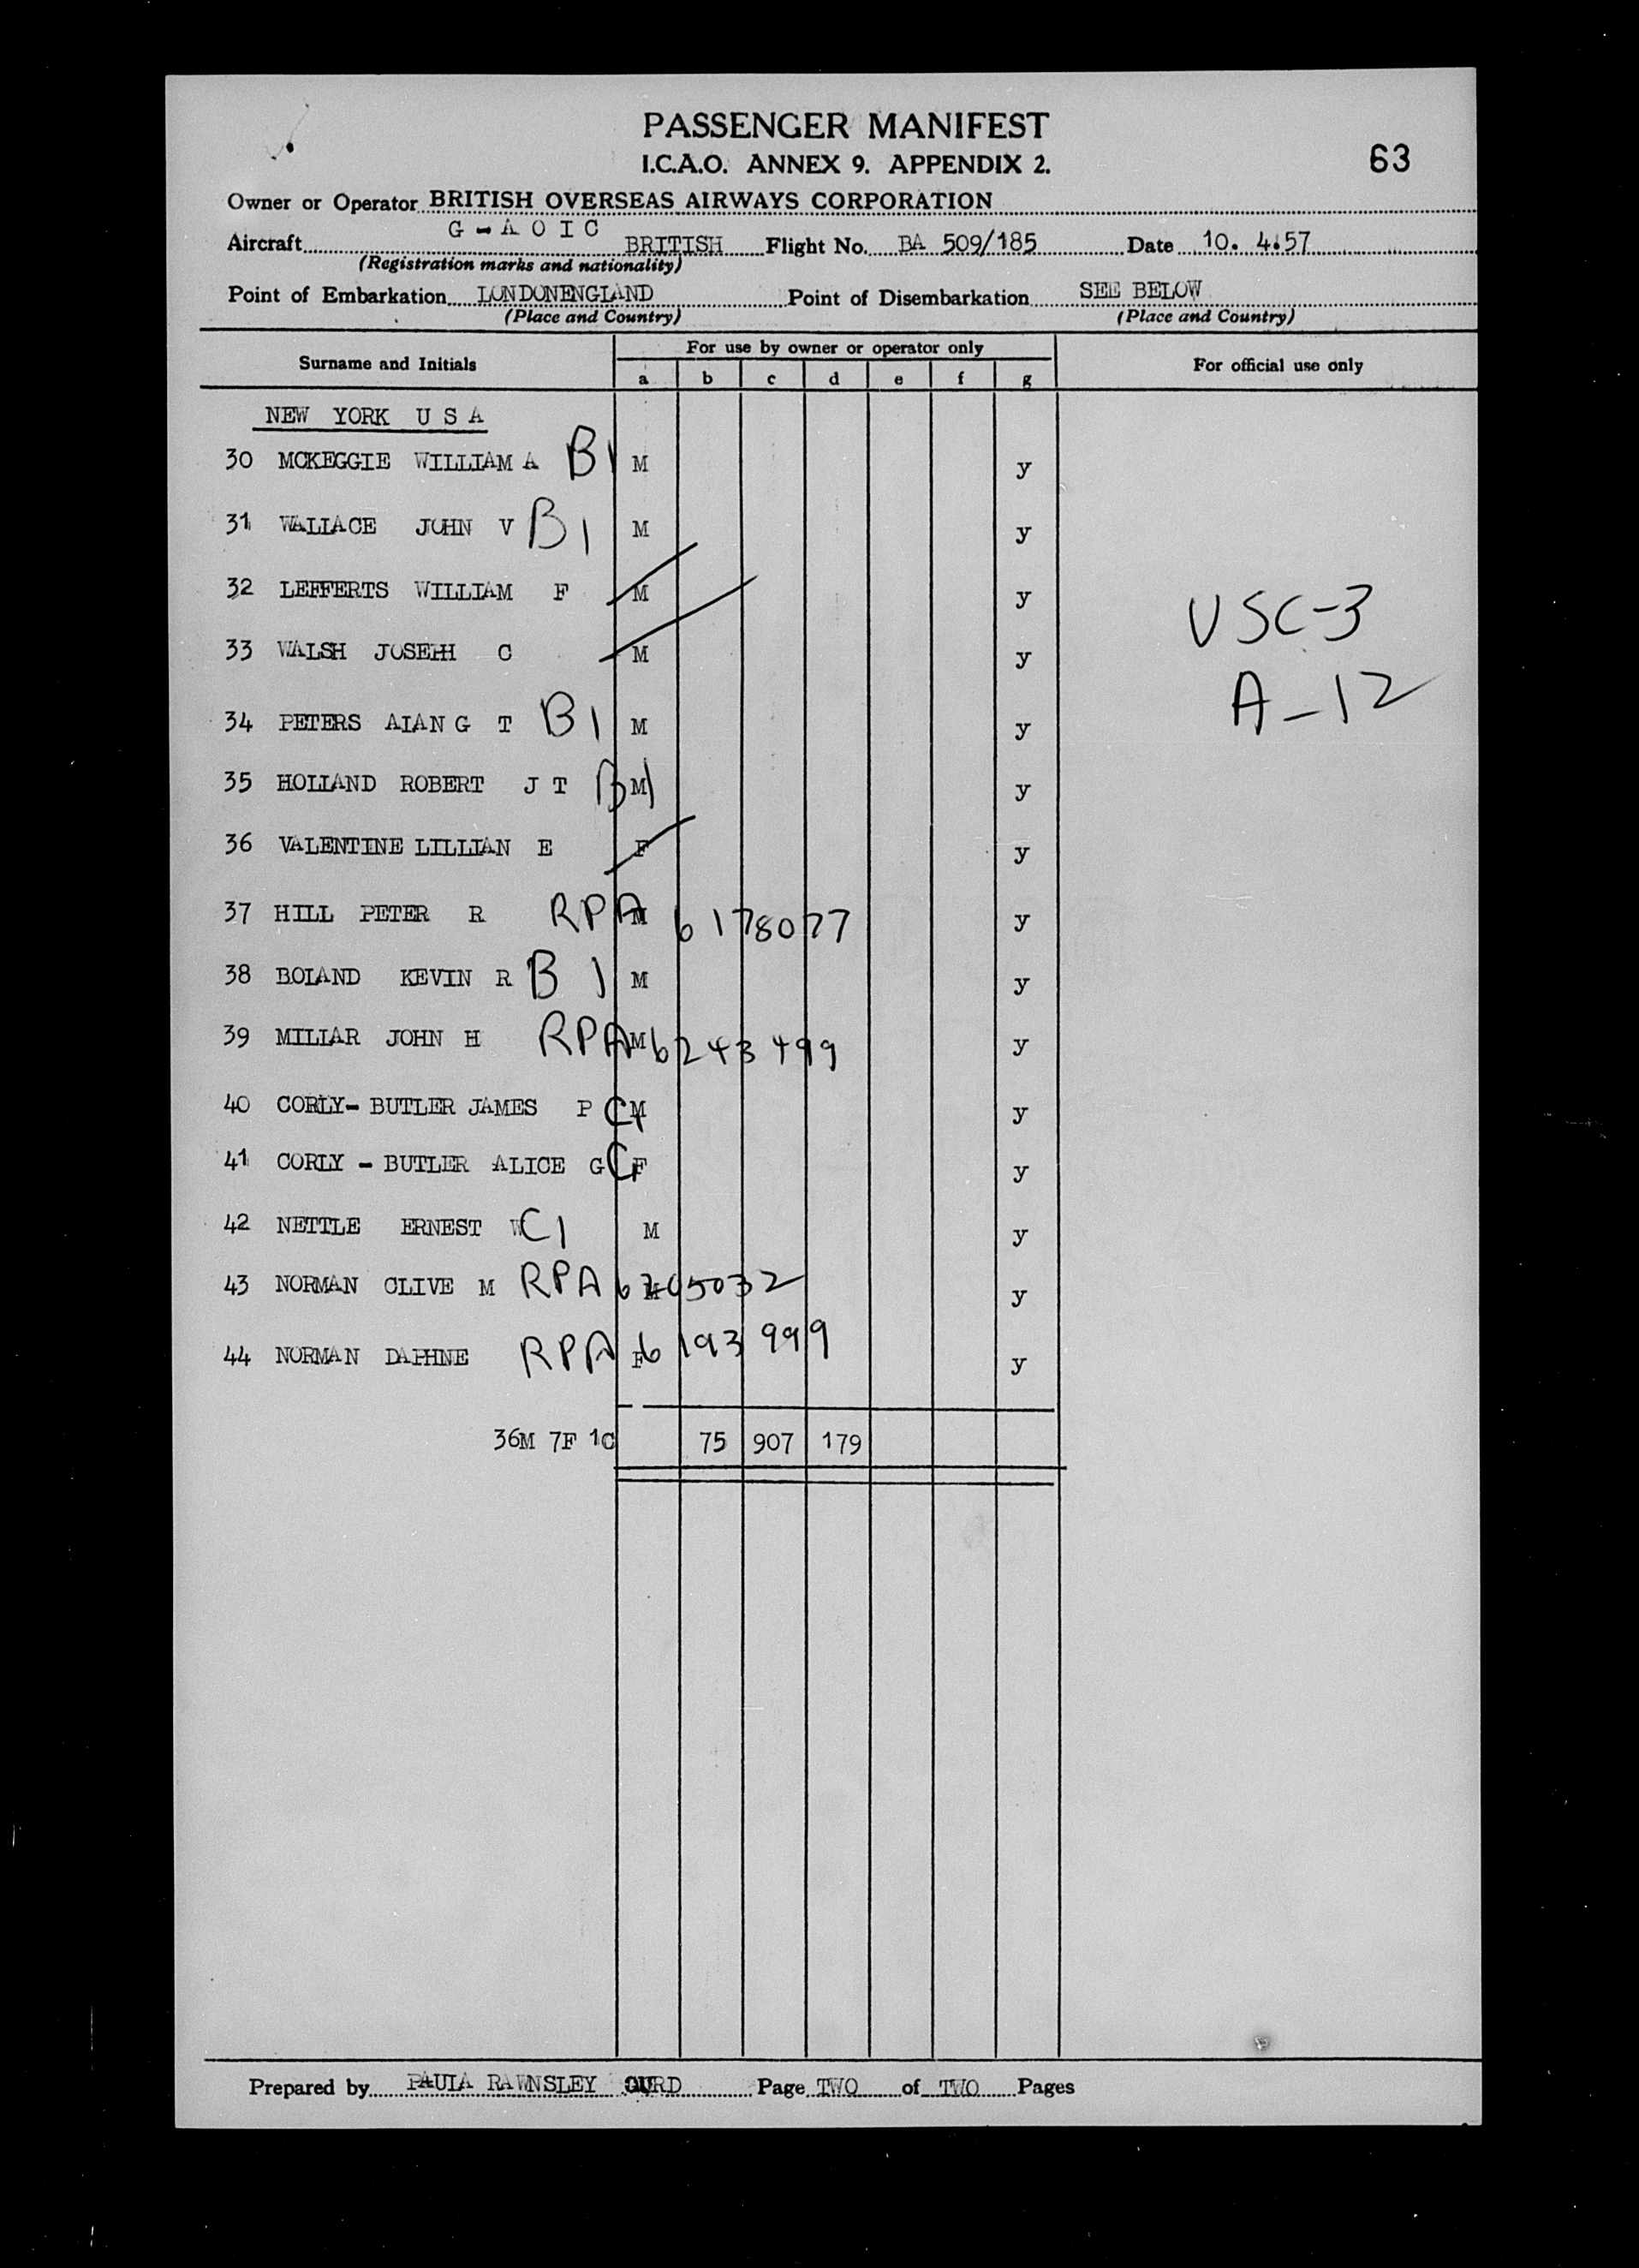 PASSENGER MANIFEST
I.C.A.O. ANNEX 9. APPENDIX 2.
63
Owner or Operator BRITISH OVERSEAS AIRWAYS CORPORATION
G-AOIC
Aircraft BRITISH Flight No. BA 509/185 Date 10. 4.57
(Registration marks and nationality)
Point of Embarkation LONDONENGLAND Point of Disembarkation SEE BELOW
(Place and Country) (Place and Country)
For use by owner or operator only
Surname and Initials For official use only
a b c d e f g
NEW YORK U S A
30 MCKEGGIE WILLIAM A B1 M y
31 WALLACE JOHN V B1 M y
32 LEFFERTS WILLIAM F M y
USC-3
33 WALSH JOSEPH C M y
A-12
34 PETERS ALAN G T B1 M y
35 HOLLAND ROBERT J T B1 M y
36 VALENTINE LILLIAN E F y
37 HILL PETER R RPA M 6178077 y
38 BOLAND KEVIN R B1 M y
39 MILLAR JOHN H RPA M 6243499 y
40 CORLY- BUTLER JAMES P C1 M y
41 CORLY - BUTLER ALICE G C1 F y
42 NETTLE ERNEST W C1 M y
43 NORMAN CLIVE M RPA M y
44 NORMAN DAPHNE RPA F 6193999 y
36M 7F 1C 75 907 179
Prepared by PAULA RAWNSLEY Page TWO of TWO Pages